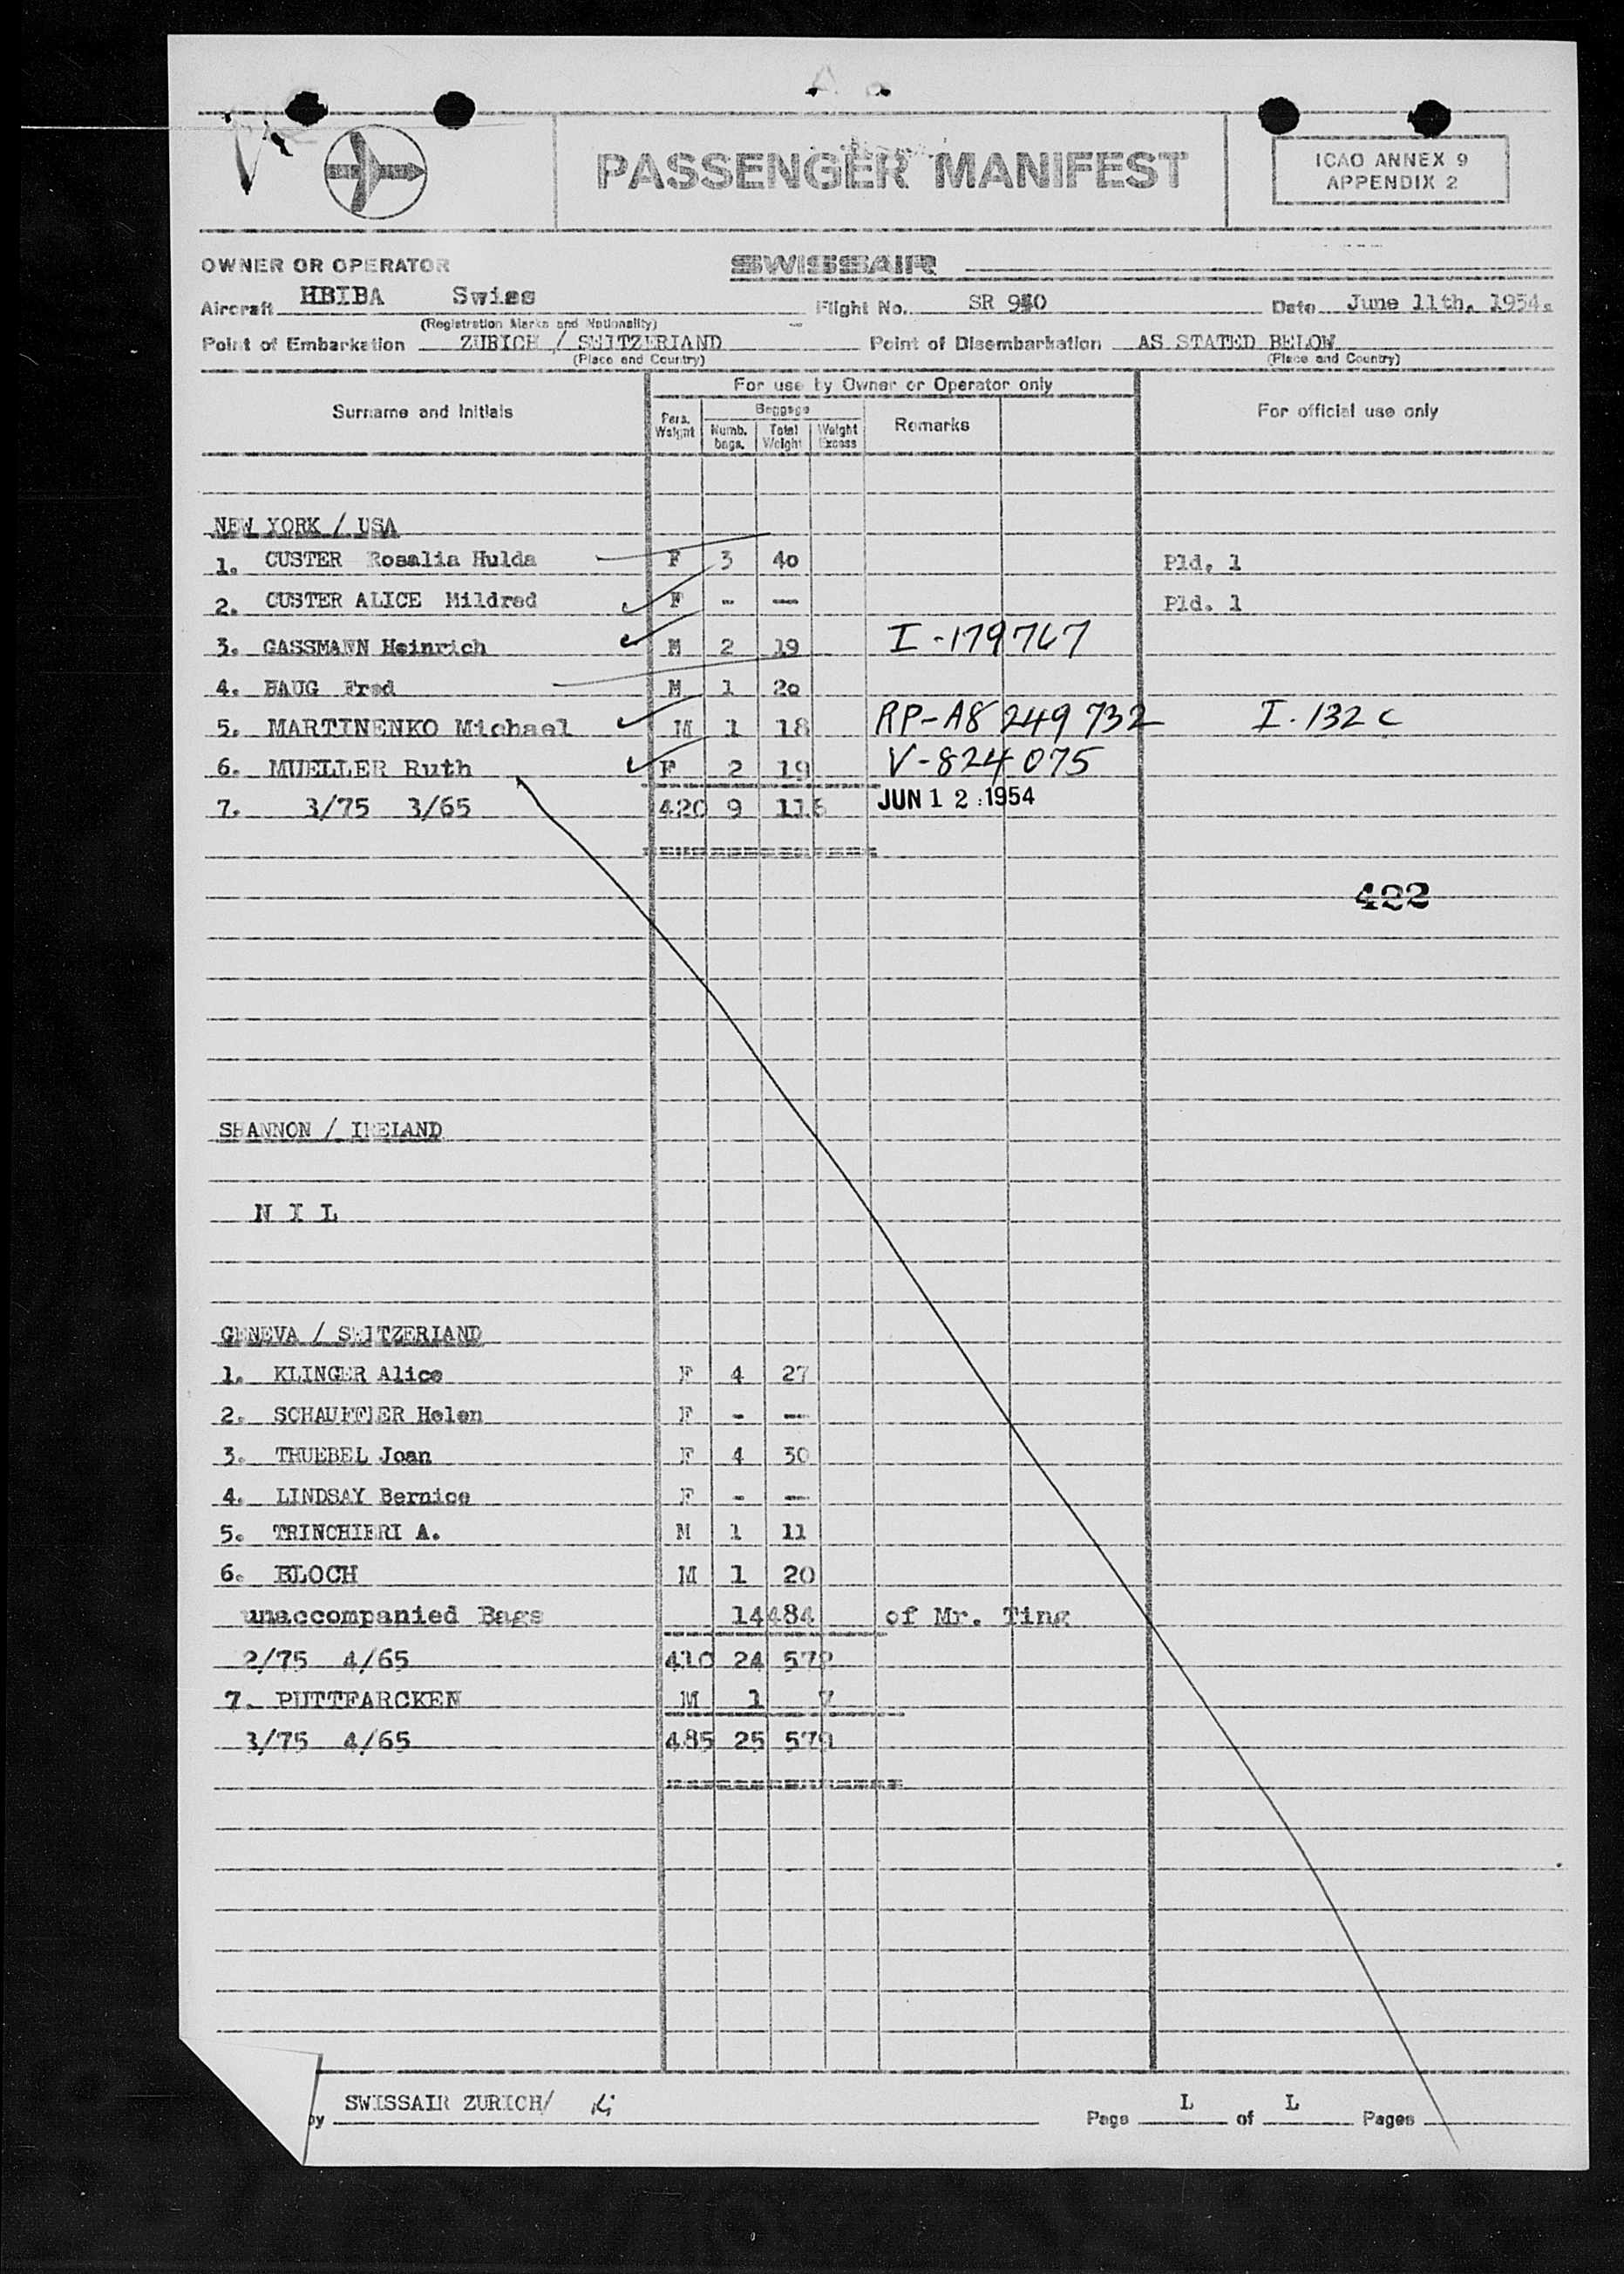 PASSENGER MANIFEST
ICAO ANNEX 9
APPENDIX 2
OWNER OR OPERATOR SWISSAIR
Aircraft HBIBA Swiss Flight No. SR 940 Date June 11th, 1954.
(Registration Marks and Nationality)
Point of Embarkation ZURICH / SWITZERLAND Point of Disembarkation AS STATED BELOW
(Place and Country) (Place and Country)
For use by Owner or Operator only
Surname and Initials Pers. Weight Baggage Numb. bags. Total Weight Weight Excess Remarks For official use only
NEW YORK / USA
1. CUSTER Rosalia Hulda F 3 40 Pld. 1
2. CUSTER ALICE Mildred F - — Pld. 1
3. GASSMANN Heinrich M 2 19 I-179767
4. HAUG Fred M 1 20
5. MARTINENKO Michael M 1 18 RP-A8 249 732 I. 132 c
6. MUELLER Ruth F 2 19 V-824 075
7. 3/75 3/65 420 9 116 JUN 12 1954
422
SHANNON / IRELAND
N I L
GENEVA / SWITZERLAND
1. KLINGER Alice F 4 27
2. SCHAUFFLER Helen F - —
3. TRUEBEL Joan F 4 30
4. LINDSAY Bernice F - —
5. TRINCHIERI A. M 1 11
6. BLOCH M 1 20
unaccompanied Bags 14 484 of Mr. Ting
2/75 4/65 410 24 572
7. PUTTFARCKEN M 1 7
3/75 4/65 485 25 579
by SWISSAIR ZURICH/
Page 1 of 1 Pages